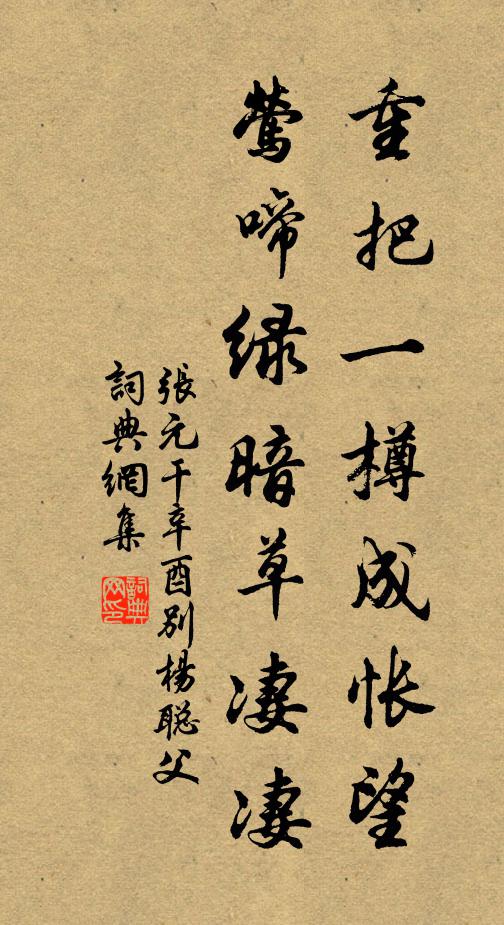 重把一樽成怅望
莺啼绿暗草凄凄
張元干辛酉別楊聪父
詞典網集
詞典网印